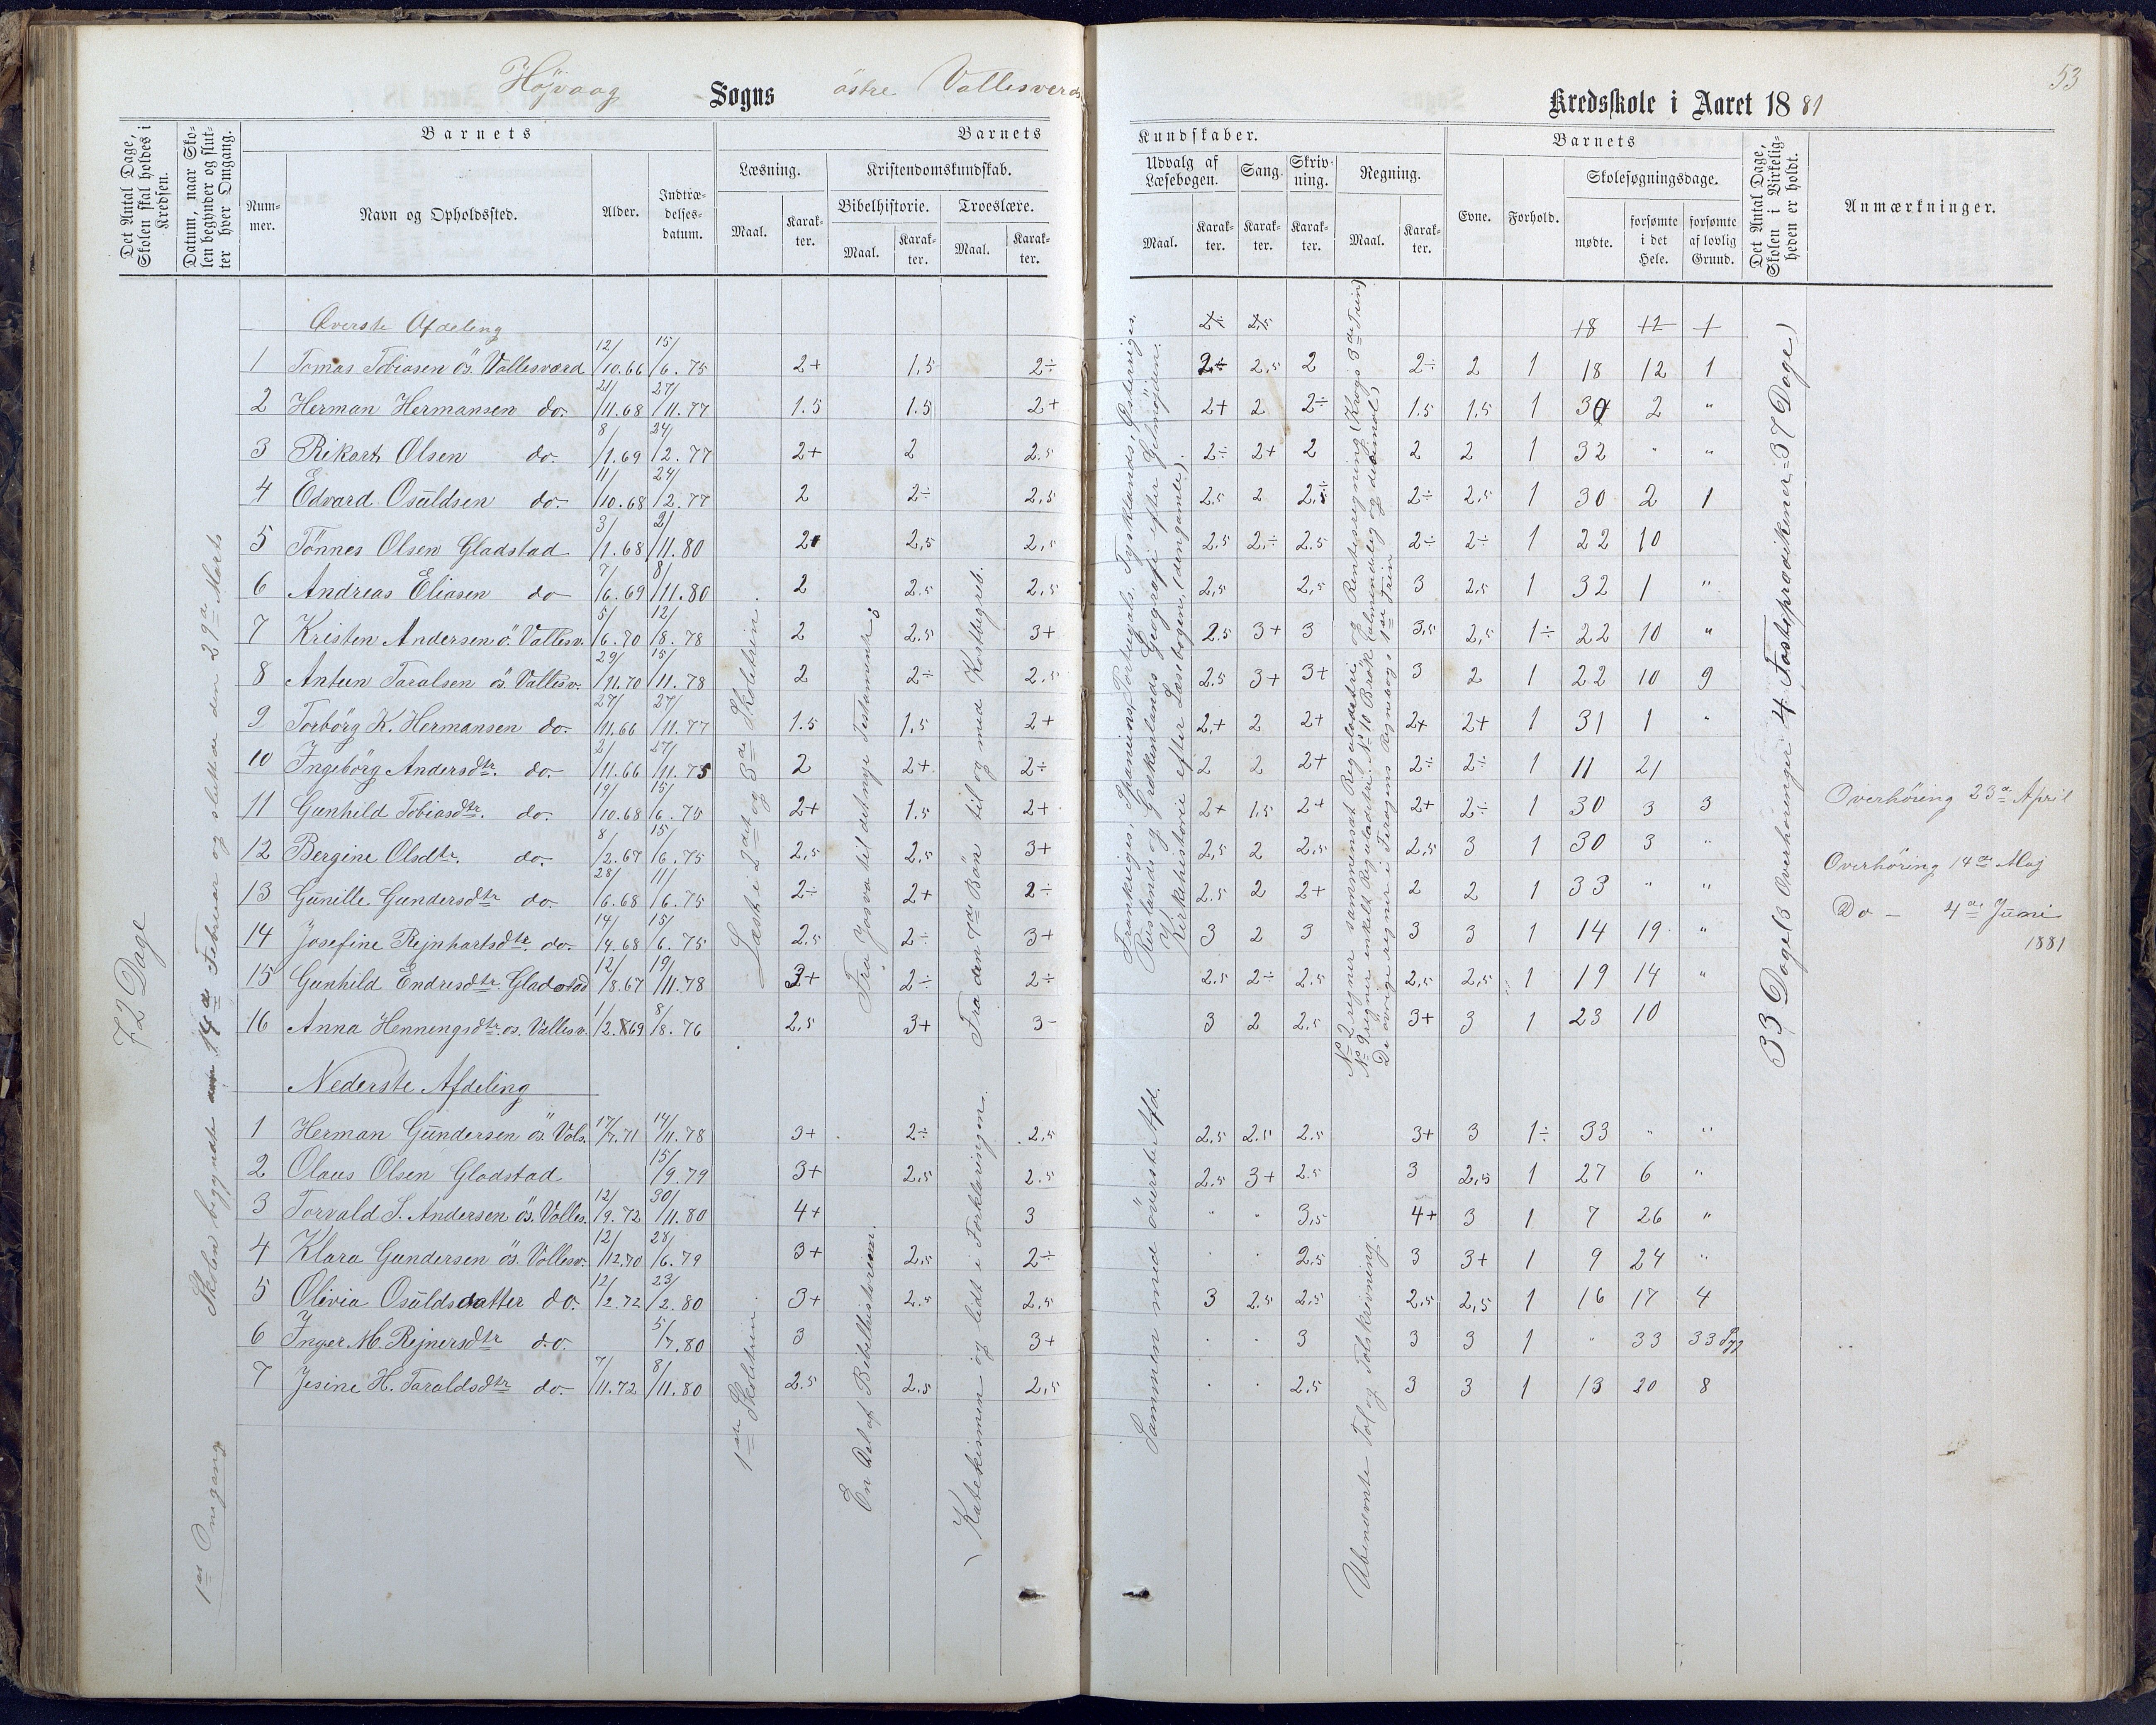 53
Höjvaag Sogns östre Vallesverds Kredsskole i Aaret 1881
Det Antal Dage, Skolen skal holdes i Kredsen.
Datum, naar Skolen begynder og slutter hver Omgang.
Barnets
Nummer.
Navn og Opholdssted.
Alder.
Indtrædelsesdatum.
Barnets Kundskaber.
Læsning.
Maal.
Karakter.
Kristendomskundskab.
Bibelhistorie.
Maal.
Karakter.
Troeslære.
Maal.
Karakter.
Udvalg af Læsebogen.
Maal.
Karakter.
Sang.
Karakter.
Skrivning.
Karakter.
Regning.
Maal.
Karakter.
Barnets
Evne.
Forhold.
Skolesøgningsdage.
mødte.
forsømte i det Hele.
forsømte af lovlig Grund.
Det Antal Dage, Skolen i Virkeligheden er holdt.
Anmærkninger.
72 Dage
1ste Omgang
Skolen begyndte 14de Februar og sluttede den 29de Marts
Øverste Afdeling 2÷ 2,5 18 12 1
1 Tomas Tobiasen ös. Vallesværd 12/10.66 15/6.75 2+ 1,5 2÷ 2÷ 2,5 2 2÷ 2 1 18 12 1
2 Herman Hermansen do. 21/11.68 27/11.77 1.5 1.5 2+ 2+ 2 2÷ 1.5 1,5 1 30 2 "
3 Rikart Olsen do. 8/1.69 24/2.77 2+ 2 2.5 2÷ 2+ 2 2 2 1 32 " "
4 Edvard Osuldsen do. 11/10.68 24/2.77 2 2÷ 2,5 2.5 2 2÷ 2÷ 2,5 1 30 2 1
5 Tönnes Olsen Gladstad 3/1.68 2/11.80 2+ 2,5 2,5 2.5 2÷ 2.5 2÷ 2÷ 1 22 10
6 Andreas Eliasen do 7/6.69 8/11.80 2 2.5 2,5 2,5 2,5 3 2,5 1 32 1 "
7 Kristen Andersen ö. Vallesv. 5/6.70 12/8.78 2 2.5 3+ 2.5 3+ 3 3,5 2,5 1÷ 22 10 "
8 Antun Taralsen ös. Vallesv. 29/11.70 15/11.78 2 2÷ 2.5 2.5 3+ 3+ 3 2 1 22 10 9
9 Torbörg K. Hermansen do. 27/11.66 27/11.77 1.5 1,5 2+ 2+ 2 2+ 2+ 2+ 1 31 1 "
10 Ingebörg Andersdtr. do. 2/11.66 27/11.75 2 2+ 2÷ 2 2 2+ 2÷ 2÷ 1 11 21
11 Gunhild Tobiasdtr. do. 19/10.68 15/6.75 2+ 1.5 2+ 2+ 1,5 2+ 2+ 2÷ 1 30 3 3
12 Bergine Olsdtr. do. 8/2.67 15/6.75 2,5 2,5 3+ 2,5 2 2,5 2,5 3 1 30 3 "
13 Gunille Gundersdtr do. 28/6.68 11/6.75 2÷ 2+ 2÷ 2.5 2 2+ 2 2 1 33 " "
14 Josefine Rejnhartsdtr. do. 14/4.68 15/6.75 2.5 2÷ 3+ 3 2 3 3 3 1 14 19 "
15 Gunhild Endresdtr. Gladstad 12/8.67 19/11.78 3+ 2÷ 2÷ 2.5 2÷ 2.5 2,5 2,5 1 19 14 "
16 Anna Henningsdtr. ös. Vallesv. 1/2.69 8/8.76 2,5 3+ 3- 3 2 2.5 3+ 3 1 23 10
Læst i 2det og 3de Skoletrin.
Fra Josva til det nye Testamente.
Fra den 4de Bön til og med Kostbegreb.
Frankriges, Spaniens, Portugals, Tysklands, Østerriges, Ruslands og Grækenlands Geografi efter Gelmejden. Kirkehistorie efter Læsebogen, (den gamle).
No 2 regner sammensat Reguladetri & Rentesregning (Krogs 3de Trin) No 9 regner enkelt Reguladetri. No 10 Brök (almindelig og decimal) De övrige regner i Foregens Regnebogs 1ste Trin
33 Dage (3 Overhøringer 4 Fastepræsikener = 37 Dage)
Overhöring 23de April
Overhöring 14de Maj
Do — 4de Juni 1881
Nederste Afdeling
1 Herman Gundersen ös. Vals. 17/7.71 14/11.78 3+ 2÷ 2,5 2,5 2.5 2.5 3+ 3 1÷ 33 " "
2 Olaus Olsen Gladstad 15/9.79 3+ 2,5 2.5 2.5 3+ 2.5 3 2,5 1 27 6 "
3 Torvald S. Andersen ös. Valles. 12/9.72 30/11.80 4+ 3 " " 3,5 4+ 3 1 7 26 "
4 Klara Gundersen ös. Vallesv. 12/12.70 28/6.79 3+ 2,5 2÷ 2,5 3 3+ 1 9 24 "
5 Olivia Osuldsdatter do. 12/2.72 23/2.80 3+ 2.5 2,5 3 2.5 2,5 2,5 2,5 1 16 17 4
6 Inger M. Rejnersdtr do. 5/7.80 3 3+ 3 3 3 1 " 33 33 Syg
7 Jesine H. Taraldsdtr do. 7/11.72 8/11.80 2.5 2.5 2,5 2.5 3 3 1 13 20 8
1ste Skoletrin.
En Del af Bibelhistorien.
Katekismen og lidt i Forklaringen.
Sammen med överste Afd.
Ubenævnte Tal og Talskrivning.